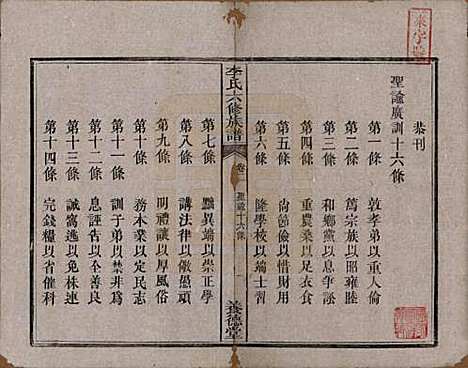 恭刊
聖諭廣訓十六條
第一條 敦孝弟以重人倫
第二條 篤宗族以昭雍睦
第三條 和鄉黨以息爭訟
第四條 重農桑以足衣食
第五條 尙節儉以惜財用
第六條 隆學校以端士習
李氏六修族譜
卷一
聖諭十六條
養德堂
第七條 黜異端以崇正學
第八條 講法律以儆愚頑
第九條 明禮讓以厚風俗
第十條 務本業以定民志
第十一條 訓子弟以禁非爲
第十二條 息誣告以全善良
第十三條 誡窩逃以免株連
第十四條 完錢糧以省催科